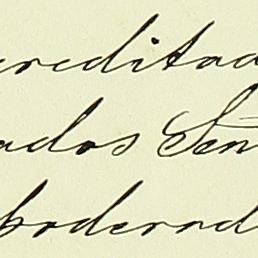 creditad
ados Sen
poderad